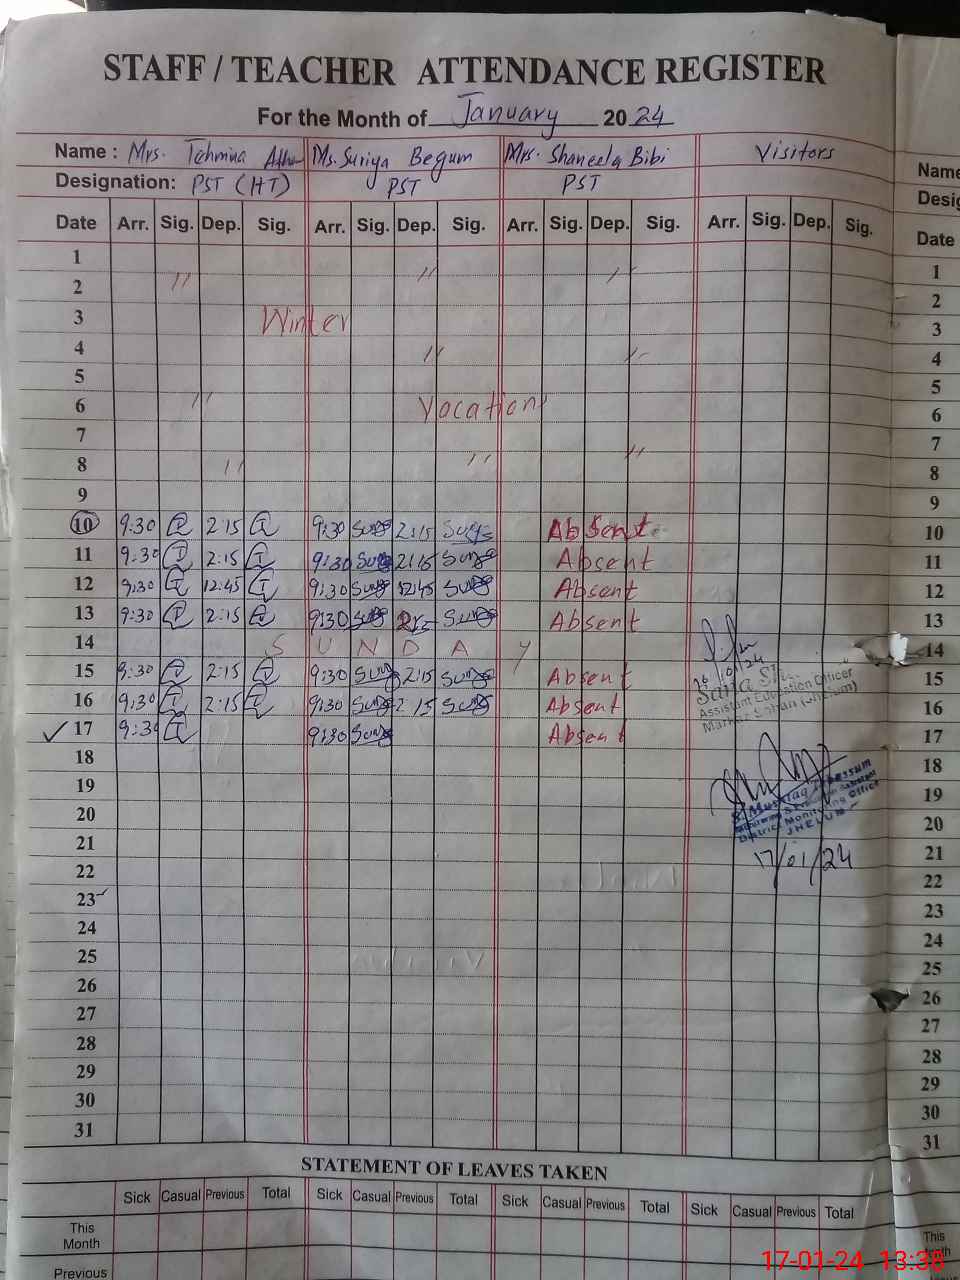 STAFF / TEACHER ATTENDANCE REGISTER
For the Month of January 2024
Name : Mrs. Tahmina Ms. Suriya Begum Mrs. Shaneela Bibi Visitors Name
Designation: PST (HT) PST PST
Date Arr. Sig. Dep. Sig. Arr. Sig. Dep. Sig. Arr. Sig. Dep. Sig. Arr. Sig. Dep. Sig. Date
1 1
2 " " " 2
3 Winter 3
4 " " 4
5 5
6 " Vacation 6
7 7
8 " " " 8
9 9
10 9:30 2:15 9:30 2:15 Absent 10
11 9:30 2:15 9:30 2:15 Absent 11
12 9:30 12:45 9:30 12:45 Absent 12
13 9:30 2:15 9:30 2:15 Absent 13
14 S U N D A Y 14
15 9:30 2:15 9:30 2:15 Absent 15
16 9:30 2:15 9:30 2:15 Absent 16
✓ 17 9:30 9:30 Absent 17
Assistant Education Officer
Markaz Sohan (Jhelum)
18 18
19 19
20 20
District Monitoring Office
JHELUM
21 17/01/24 21
22 22
23 23
24 24
25 25
26 26
27 27
28 28
29 29
30 30
31 31
STATEMENT OF LEAVES TAKEN
Sick Casual Previous Total Sick Casual Previous Total Sick Casual Previous Total Sick Casual Previous Total
This Month This
Previous
17-01-24 13:38